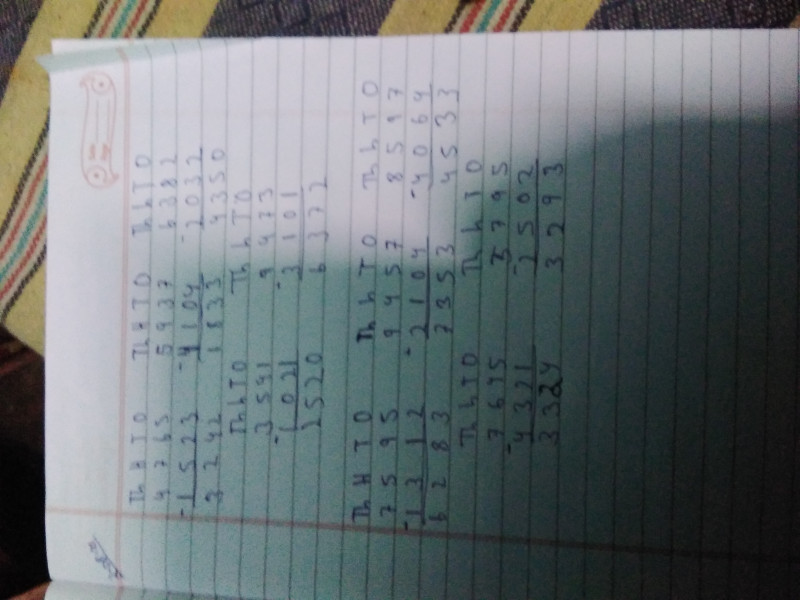 Th H T O Th H T O Th h T O
4 7 6 5 5 9 3 7 6 3 8 2
- 1 5 2 3 - 4 1 0 4 - 2 0 3 2
3 2 4 2 1 8 3 3 4 3 5 0
Th h T O Th h T O
3 5 4 1 9 4 7 3
- 1 0 2 1 - 3 1 0 1
2 5 2 0 6 3 7 2
Th H T O Th h T O Th h T O
7 5 9 5 9 4 5 7 8 5 9 7
- 1 3 1 2 - 2 1 0 4 - 4 0 6 4
6 2 8 3 7 3 5 3 4 5 3 3
Th h T O Th h T O
7 6 4 5 5 7 9 5
- 4 3 2 1 - 2 5 0 2
3 3 2 4 3 2 9 3